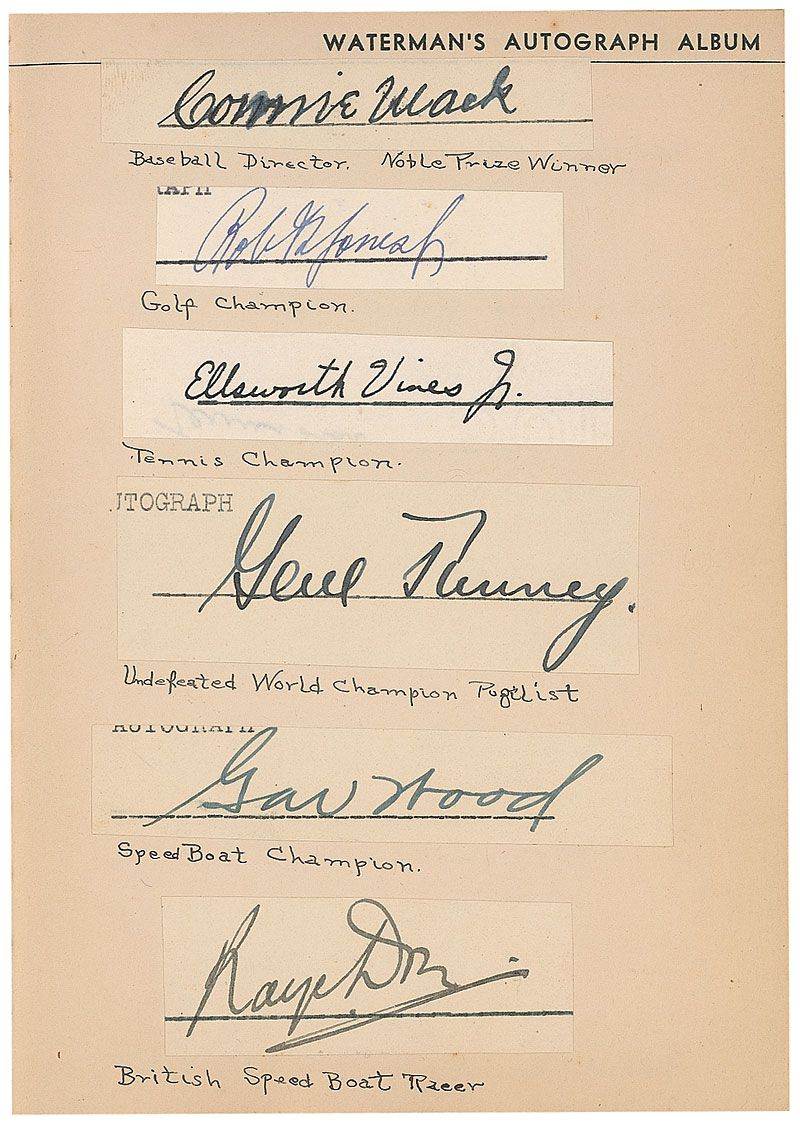 WATERMAN'S AUTOGRAPH ALBUM
Connie Mack
Baseball Director. Noble Prize Winner
RAPH
Rob T Jones Jr
Golf Champion.
Ellsworth Vines Jr.
Tennis Champion.
UTOGRAPH
Gene Tunney.
Undefeated World Champion Pugilist
AUTOGRAPH
Gar Wood
Speed Boat Champion.
Kaye Don
British Speed Boat Racer